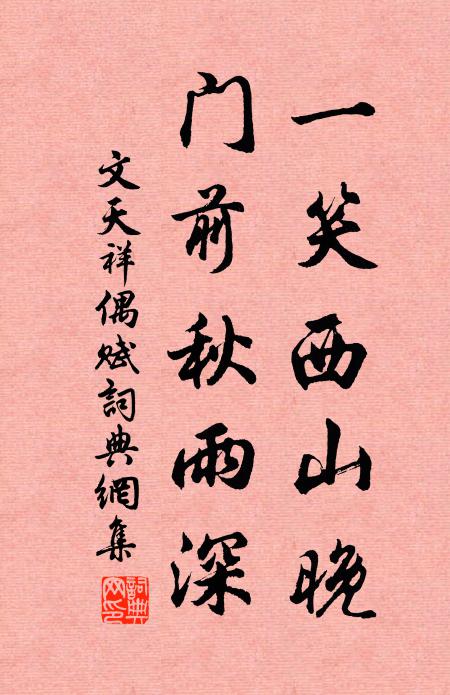 一笑西山晚
门前秋雨深
文天祥偶赋詞典網集
詞典網印